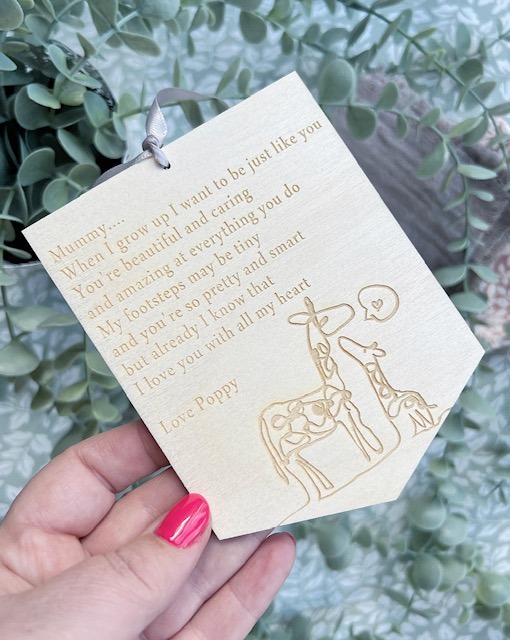 Mummy....
When I grow up I want to be just like you
You're beautiful and caring
and amazing at everything you do
My footsteps may be tiny
and you're so pretty and smart
but already I know that
I love you with all my heart
Love Poppy